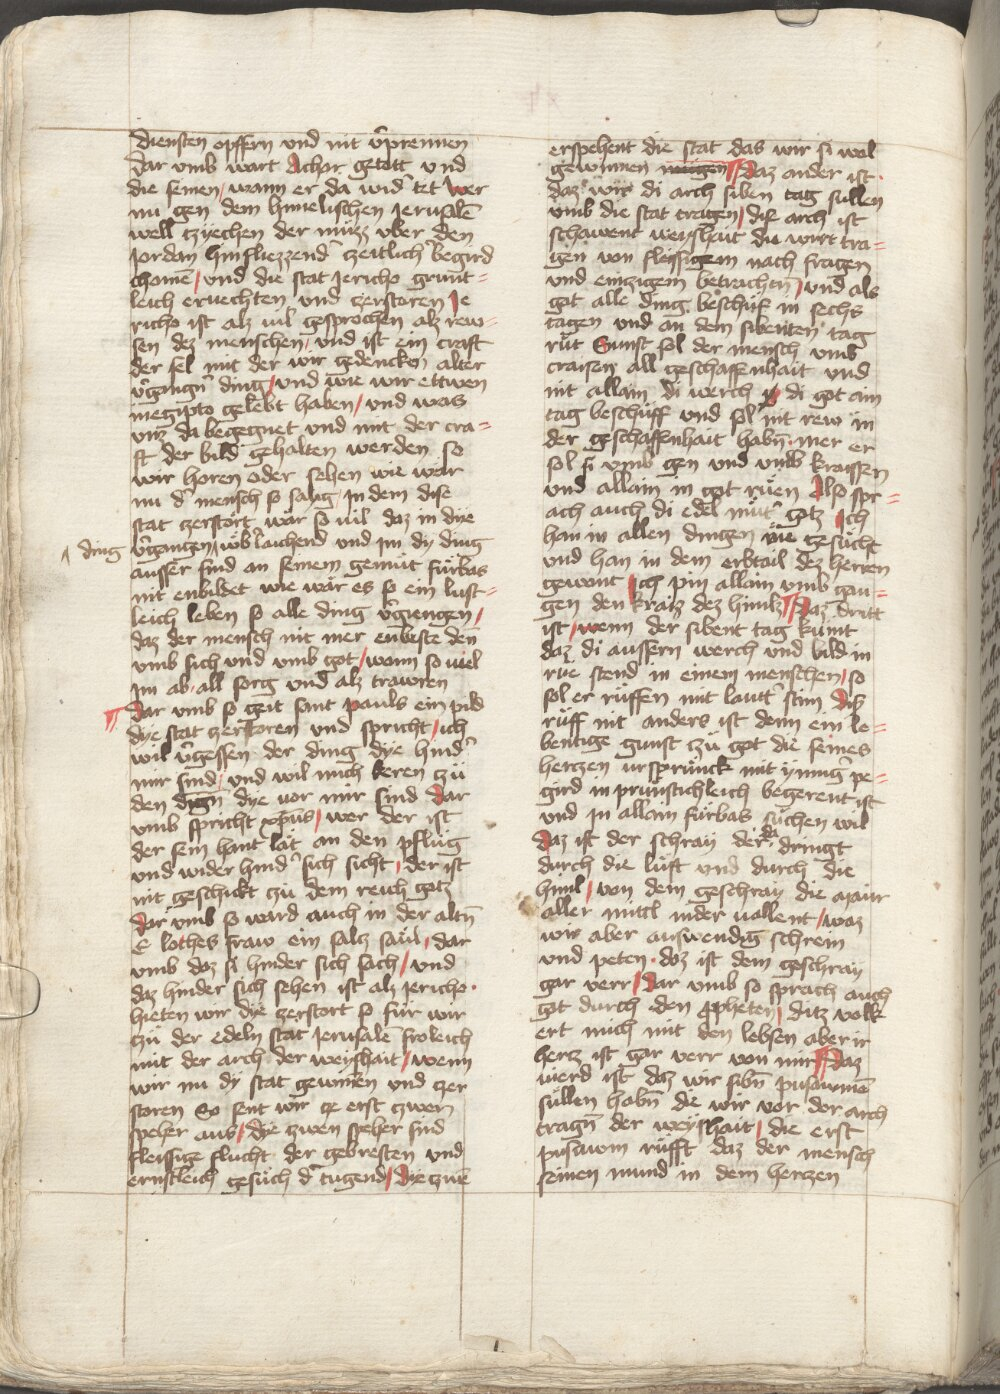 diensten opffern vnd nit v̄prennen
dar vmb wart Achor getott vnd
die seinen / wann er da wid̄ tet Wer
nu gen dem himelischen Jerusalē
well czyechen der můzz vber den
Jordan hinfliezzend̄ czeitlich̄ begird
chomē / vnd die stat Jericho grunt=
leich ervechten vnd czerstoren Je
richo ist alz vil gesprochen alz rew=
sen dez menschen / vnd ist ein craft
der sel mit der wir gedencken alter
v̄gangn̄ ding / vnd wie wir ettwen
inegipto gelebt haben / vnd was
vnz da begegnet vnd mit der cra=
ft der bild gehalten werden so
wir horen oder sehen wie wer
nu d̄ mensch so sälig in dem dise
stat czerstört wär so vil daz in dye
ding
v̄gangen / wöb lauchend vnd im dy ding
ausser sind an seinem gemüt fürbas
nit enbildet wie wär es so ein lust=
leich leben so alle ding v̄giengen /
daz der mensch nit mer enbeste den
vmb sich vnd vmb got / wann so viel
im ab all sorg vnd alz trawren
Dar vmb so geit sant pauls ein pild
dye stat zerstoren vnd spricht / ich
wil v̄gessen der ding dye hind̄
mir sind / vnd wil mich keren czü
den dīgn̄ dye vor mir sind Dar
vmb spricht xp̄us / wer der ist
der sein hant lät an den pflüg
vnd wider hind̄ sich sicht / der ist
nit geschikt czu dem reich gotz
Dar vmb so ward auch in der altn̄
e lothes fraw ein salcz saül / dar
vmb daz si hinder sich sach / vnd
daz hinder sich sehen ist alz Jericho ·
hieten wir dye zerstort so für wir
czü der edeln stat Jerusalē froleich
mit der arch der weyshait / wenn
wir nu dy stat gewinnen vnd czer
storen So sent wir ze erst czwen
speher aus / dye zwen speher sind
fleissige flucht der gebresten vnd
ernstleich gesüch d̄ tugend / Dye czwē
erspehent die stat das wir si wol
gewinnen mügen Daz ander ist ·
daz wir di arch siben tag sullen
vmb die stat tragen / dise arch ist
schawent weyshait die wirt tra=
gen von fleissigem nach fragen
vnd einzigem betrachten / vnd als
got alle ding beschüf in sechs
tagen vnd an dem sibenten tag
rüt Sunst sol der mensch vmb
craisen all geschaffenhait vnd
nit allain di werch di got am
tag beschüff vnd sol nit rew in
der geschaffenhait habn̄ · mer er
sol si vmb gen vnd vmb kraissen
vnd allain in got rüen Also spr=
ach auch di edel müt̄ gotz Ich
han in allen dingen rüe gesücht
vnd han in dem erbtail dez herren
gewont Ich pin allain vmb gan=
gen den kraiz dez himlz Daz dritt
ist / wenn der sibent tag kümt
daz di aussern werch vnd bild in
rue stend in einem menschen / so
sol er rüffen mit laut̄ stim diß
rüff nit anders ist denn ein le=
bentige gunst czü got die seines
herczen vrsprünck mit ynniḡ pe=
gird in prünstichleich begerent ist
vnd in allain fürbas süchen wil
Daz ist der schray der da dringt
durch die lüft vnd durch die
himl / von dem geschray die maür
aller mittl nider vallent / waz
wir aber auswendig schrein
vnd peten · daz ist dem geschray
gar verr / Dar vmb so sprach auch
got durch den ꝓpheten / ditz volk
ert mich mit den lebsen aber ir
hercz ist gar verr von mir Daz
vierd ist daz wir sibn̄ pusawmē
sullen habn̄ die wir vor der arch
tragn̄ der weyshait / die erst
pusawm rüfft daz der mensch
seinen mund in dem herczen